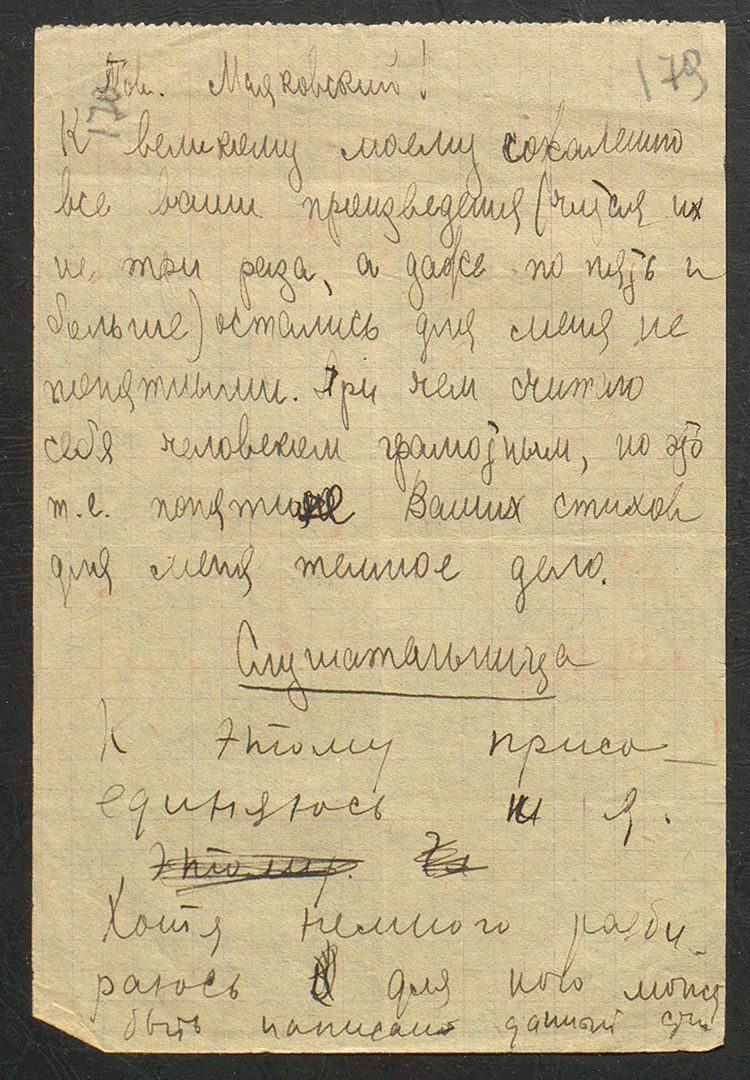 Тов. Маяковский! 179
170
К великому моему сожалению
все ваши произведения (читая их
не три раза, а даже по пять и
больше) остались для меня не
понятными. При чем считаю
себя человеком грамотным, но это
т.е. понятие Ваших стихов
для меня темное дело.
Слушательница
К этому присо_
единяюсь и я.
этому.
Хотя немного разби_
раюсь для кого может
быть написано данный сти